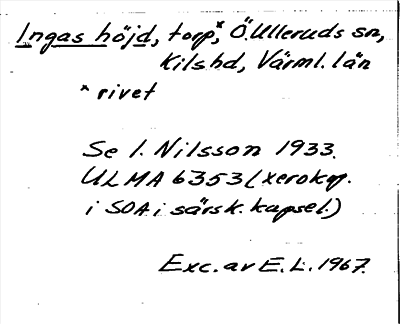 Ingas höjd, torp*, Ö.Ulleruds sn,
Kils hd, Värml. län
* rivet
Se I. Nilsson 1933.
ULMA 6353 (xerokop.
i SOA i särsk. kapsel.)
Exc. av E. L. 1967.